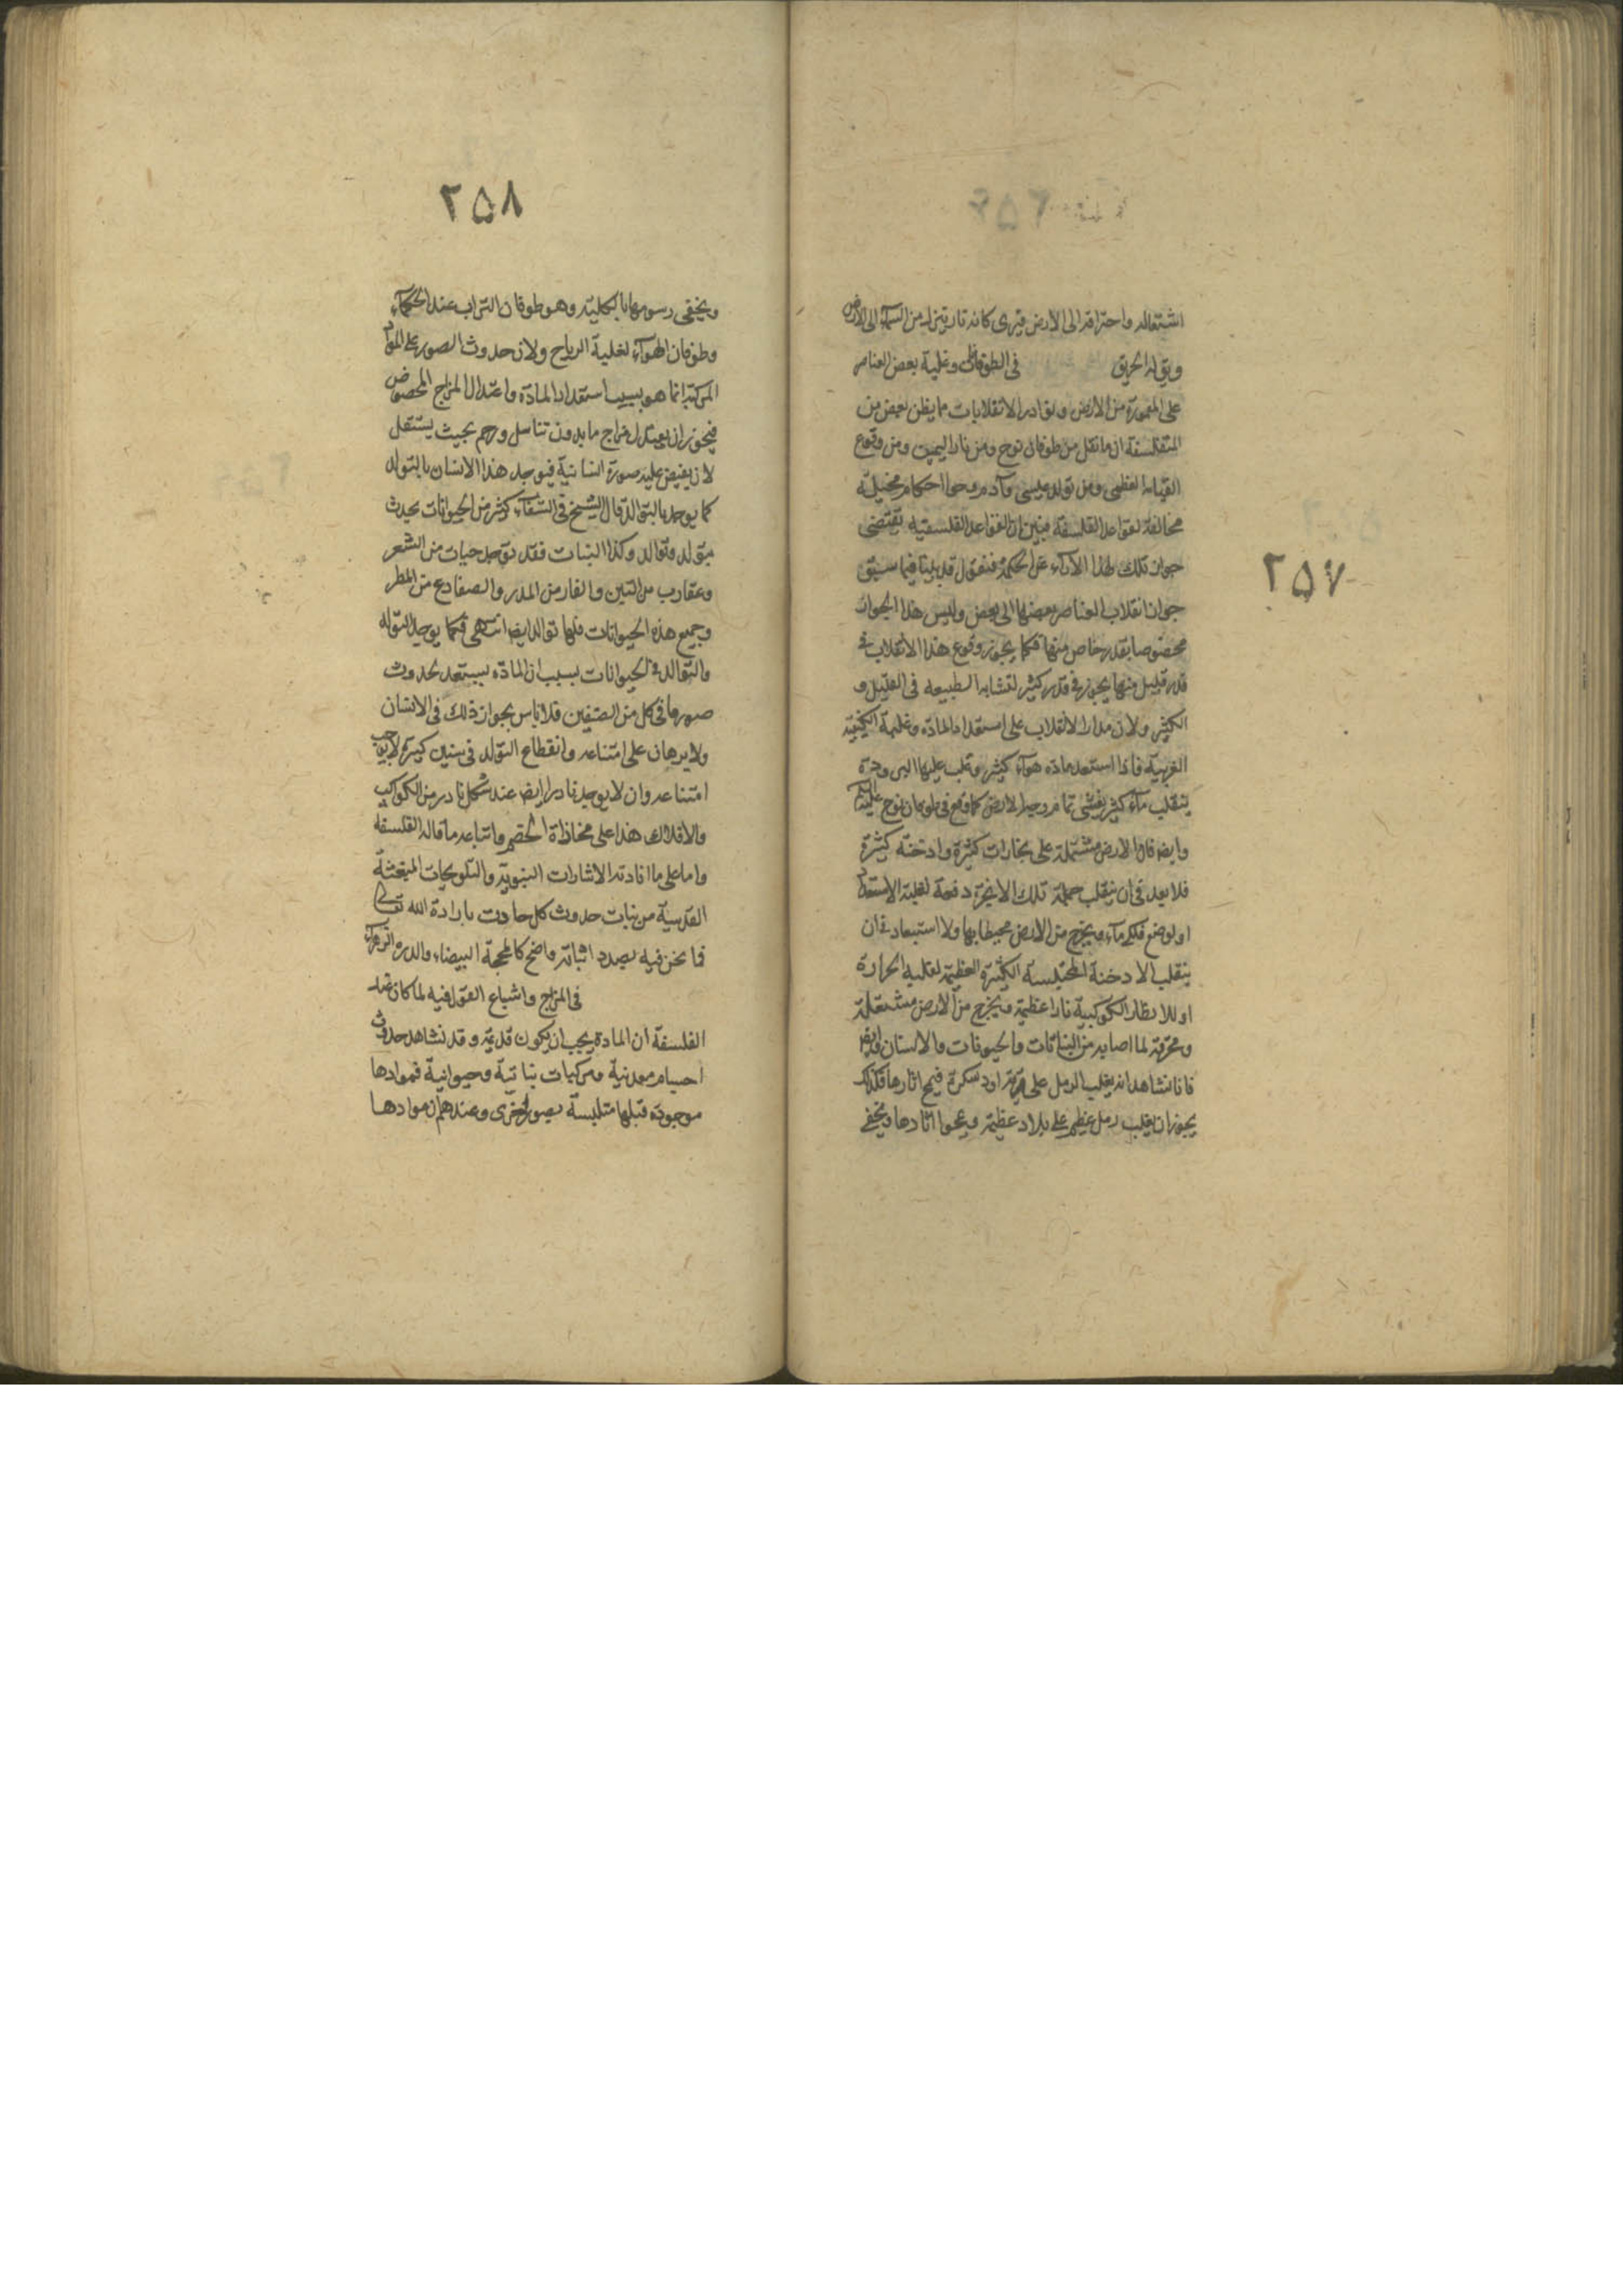 ٢٥٧
اشتعاله واحتراقه الى الارض فيرى كانه نار ينزل من السمآء الى الارض
ويق له الحريق في الطوفانات وغلبة بعض العناصر
على المعمورة من الارض ونوادر الانقلابات مما يظن بعض من
المتفلسفة ان ما نقل من طوفان نوح ومن نار اليمن ومن وقوع
القيامة العظمى ومن تولد عيسى وآدم وحوا احكام مخيلة
مخالفة لقواعد الفلسفة فنبين ان القواعد الفلسفية تقتضى
جواز تلك لهذا الآراء عن الحكمة فنقول قد بينا فيما سبق
جواز انقلاب العناصر بعضها الى بعض وليس هذا الجواز
مخصوصا بقدر خاص منها فكما يجوز وقوع هذا الانقلاب في
قدر قليل منها يجوز في قدر كثير لتشابه الطبيعه في القليل و
الكثير ولان مدار الانقلاب على استعداد المادة وغلبة الكيفية
الغريبة فاذا استعد مادة هوآء كثير وغلب عليها البرودة
ينقلب مآء كثير يغشى تمام وجه الارض كما وقع في طوفان نوح عليه السلم
وايضا فان الارض مشتملة على بخارات كثيرة وادخنة كثيرة
فلا بعد في ان ينقلب جملة تلك الابخرة دفعة لغلبة الاستعداد
او لوضع فلكى مآء ويخرج من الارض محيطا بها ولا استبعاد في ان
ينقلب الادخنة المحتبسة الكثيرة العظيمة لغلبة الحرارة
او للانظار الكوكبية نارا عظيمة ويخرج من الارض مشتعلة
ومحرقة لما اصابه من النباتات والحيوانات والانسان وايضا
فانا نشاهد انه يغلب الرمل على قرية او دسكرة فيمح اثارها فكذلك
يجوز ان يغلب رمل عظيم على بلاد عظيمة ويمحوا اثارها ويخفى
٢٥٨
ويخفى رسومها بالكلية وهو طوفان التراب عند الحكمآء
وطوفان الهوآء لغلبة الرياح ولان حدوث الصور على المواد
المركبة انما هو بسبب استعداد المادة واعتدال المزاج المخصوص
فيجوز ان يعتدل مزاج ما بدون تناسل ورحم بحيث يستقل
لان يفيض عليه صورة انسانية فيوجد هذا الانسان بالتولد
كما يوجد بالتوالد قال الشيخ في الشفآء كثير من الحيوانات يحدث
بتولد وتوالد وكذا النبات فقد توجد حيات من الشعر
وعقارب من التين والفار من المدر والضفادع من المطر
وجميع هذه الحيوانات فلها توالد ايضا انتهى فكما يوجد التولد
والتوالد في الحيوانات بسبب ان المادة يستعد لحدوث
صورها في كل من الصنفين فلا باس بجواز ذلك في الانسان
ولا برهان على امتناعه وانقطاع التولد في سنين كثيرة لا يوجب
امتناعه وان لا يوجد نادرا ايضا عند شكل نادر من الكواكب
والافلاك هذا على محاذاة الخصم واتباعه ما قاله الفلسفة
واما على ما افادته الاشارات النبوية والتلويحات المنبعثة
القدسية من بيات حدوث كل حادث بارادة الله تعالى
فما نحن فيه بصدد اثباته واضح كالمحجة البيضاء والدرة الزهرآء
في المزاج واشباع القول فيه لما كان عند
الفلسفة ان المادة يجب ان يكون قديمة وقد نشاهد حدوث
اجسام معدنية ومركبات نباتية وحيوانية فموادها
موجودة قبلها متلبسة بصور اخرى وعندهم ان موادها